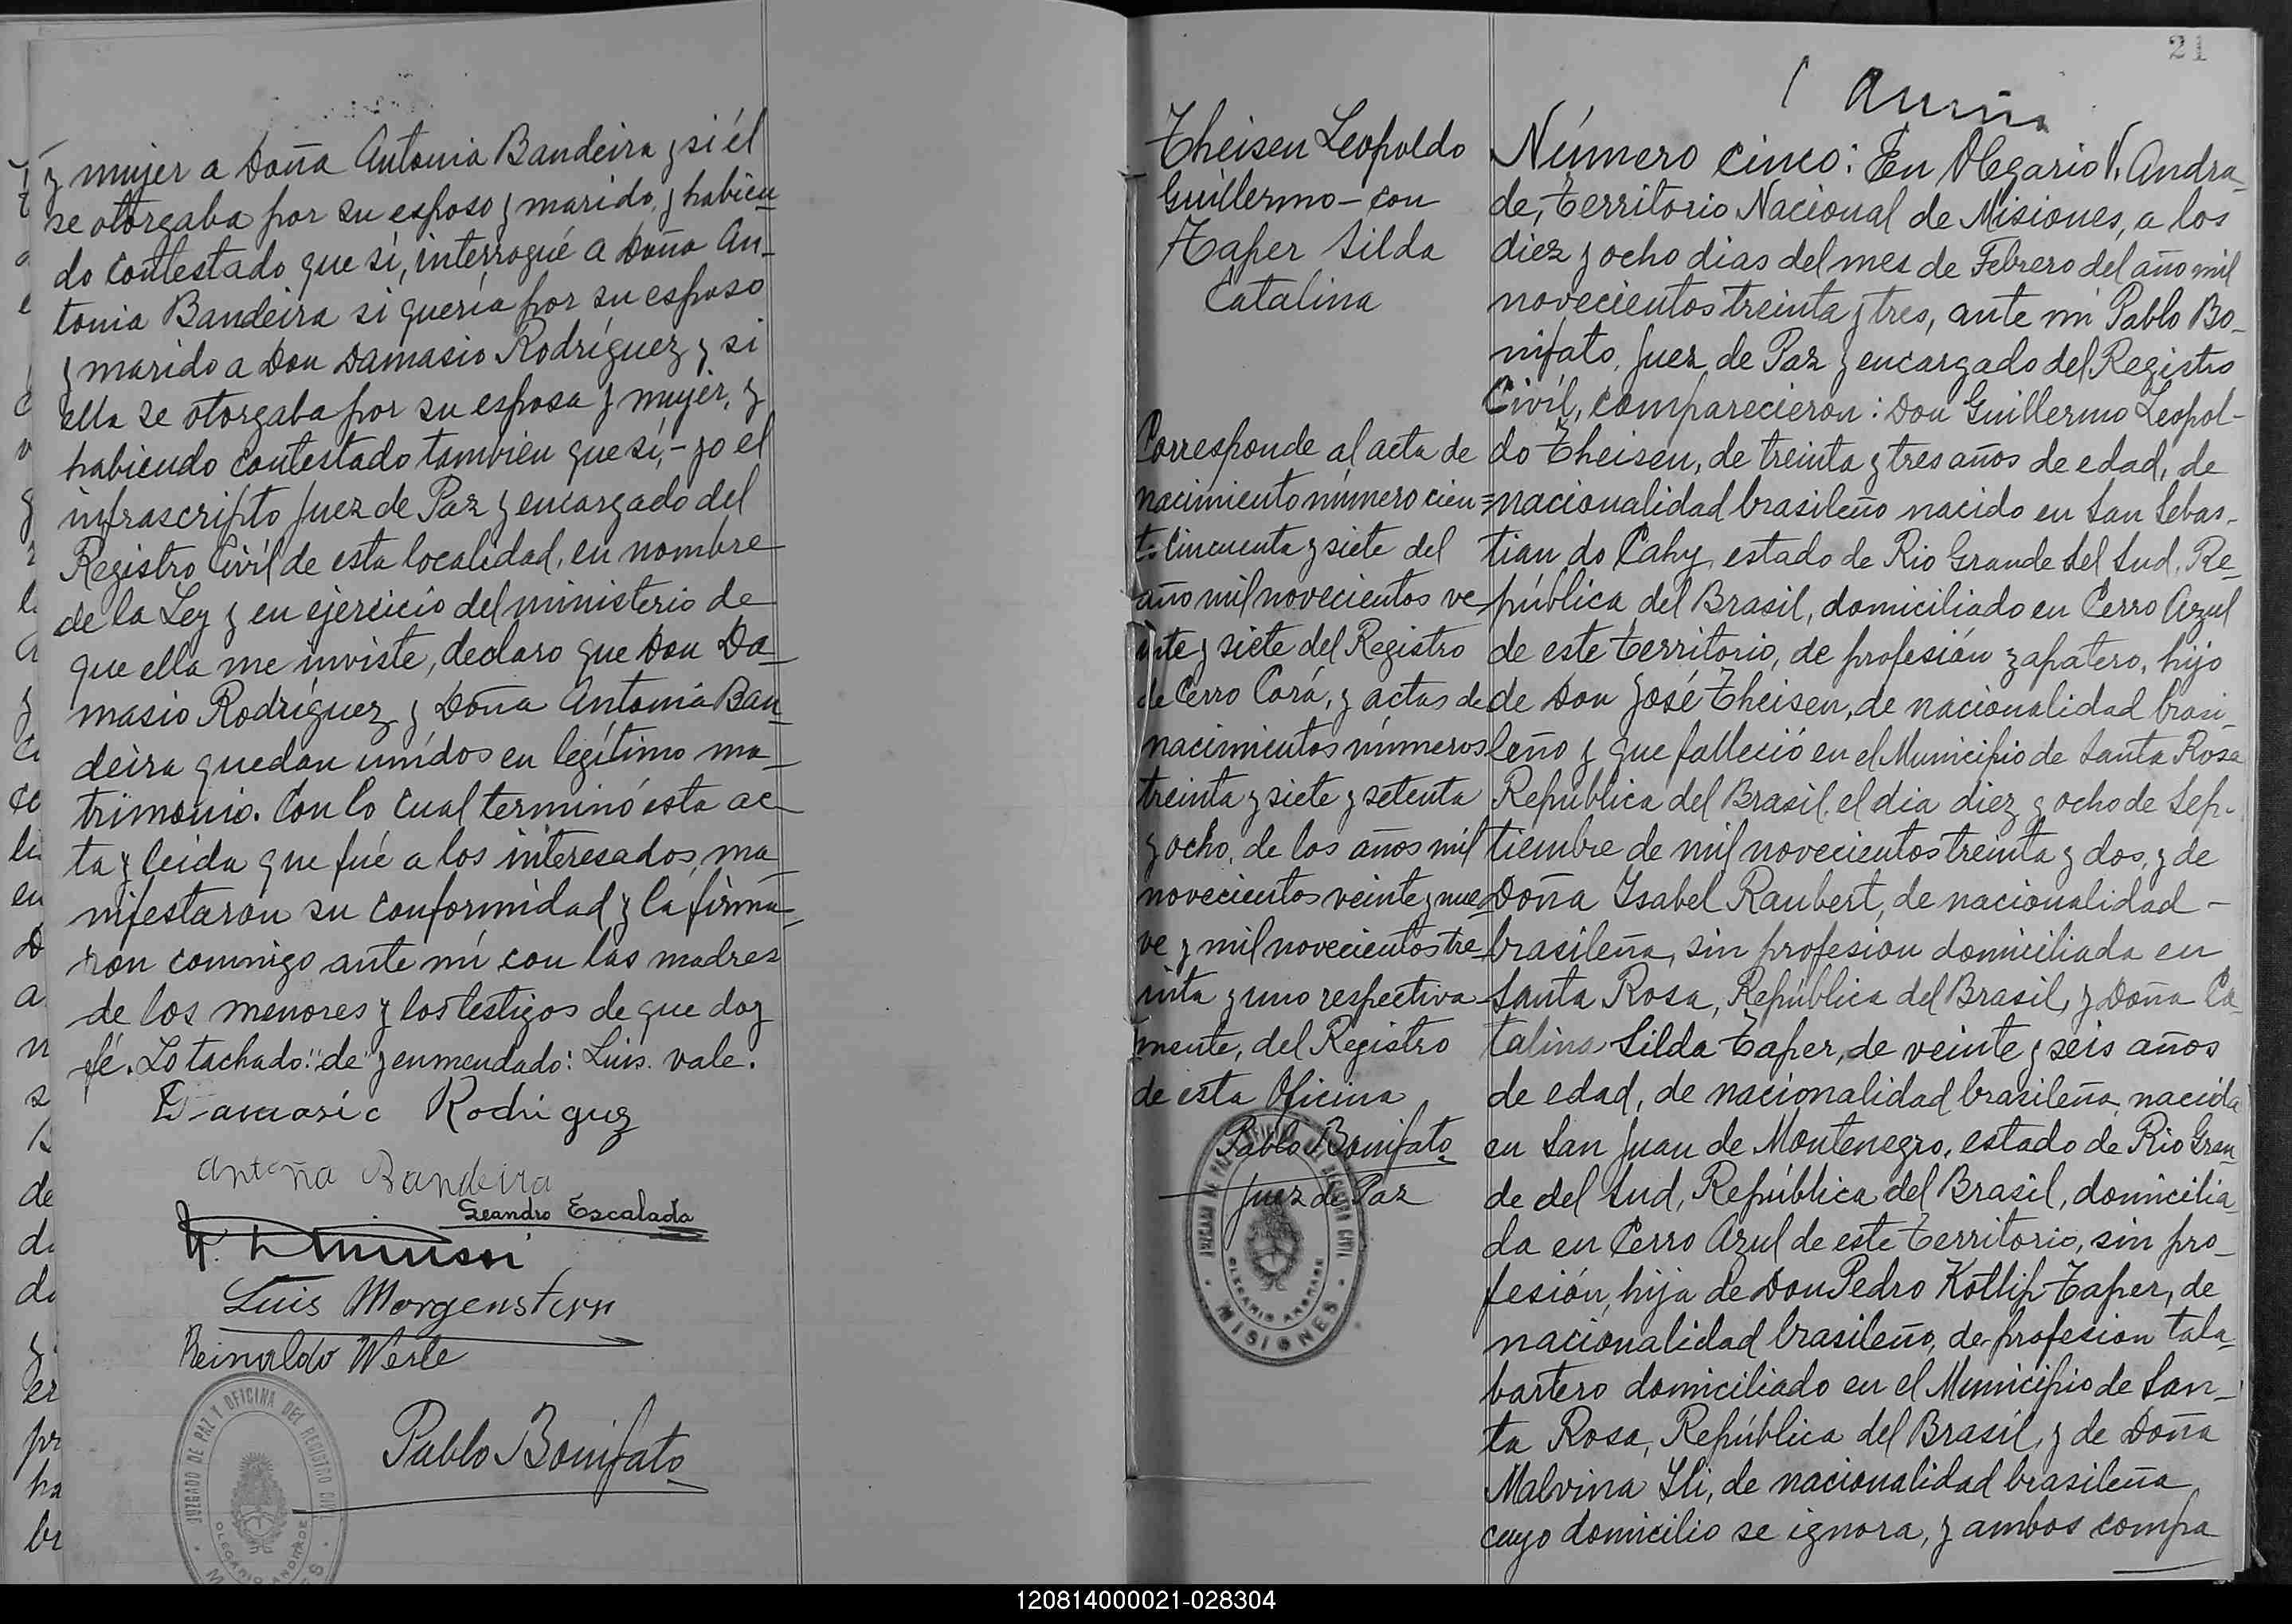 y mujer a Doña Antonia Bandeira y si él
se otorgaba por su esposo y marido, y habien
do contestado que sí, interrogué a Doña An-
tonia Bandeira si quería por su esposo
y marido a Don Damasio Rodríguez y si
ella se otorgaba por su esposa y mujer, y
habiendo contestado tambien que sí, - yo el
infrascripto Juez de Paz y encargado del
Registro Civíl de esta localidad, en nombre
de la Ley y en ejercicio del ministerio de
que ella me inviste, declaro que Don Da-
masio Rodríguez y Doña Antonia Ban
deira quedan unídos en legítimo ma-
trimonio. Con lo cual terminó esta ac-
ta y leida que fué a los interesados, ma-
nifestaron su conformidad y la firma-
ron conmigo ante mí con las madres
de los menores y los testigos de que doy
fé. Lo tachado: "de" y enmendado: Luis. vale.
Damasio Rodriguz
Antoña Bandeira
Leandro Escalada
Luis Morgenstern
Reinaldo Werle
Pablo Bonifato
JUZGADO DE PAZ Y OFICINA DEL REGISTRO CIVIL
OLEGARIO ANDRADE
21
Theisen Leopoldo
Guillermo - con
Taper Silda
Catalina
Corresponde al acta de
nacimiento número cien=
to cincuenta y siete del
año mil novecientos ve
inte y siete del Registro
de Cerro Corá, y actas de
nacimientos números
treinta y siete y setenta
y ocho, de los años mil
novecientos veinte y nue
ve y mil novecientos tre
inta y uno respectiva
mente, del Registro
de esta Oficina
Pablo Bonifato
Juez de Paz
JUZGADO DE PAZ Y OFICINA DEL REGISTRO CIVIL
OLEGARIO ANDRADE
MISIONES
Número cinco: En Olegario V. Andra-
de, territorio Nacional de Misiones, a los
diez y ocho dias del mes de Febrero del año mil
novecientos treinta y tres, ante mí Pablo Bo-
nifato, Juez de Paz y encargado del Registro
Civíl, comparecieron: Don Guillermo Leopol-
do Theisen, de treinta y tres años de edad, de
nacionalidad brasileño nacido en San Sebas-
tian do Cahy, estado de Rio Grande del Sud, Re-
pública del Brasil, domiciliado en Cerro Azul
de este territorio, de profesión zapatero, hijo
de Don José Theisen, de nacionalidad brasi-
leño y que falleció en el Municipio de Santa Rosa
República del Brasil el dia diez y ocho de Sep-
tiembre de mil novecientos treinta y dos, y de
Doña Isabel Raubert, de nacionalidad -
brasileña, sin profesion domiciliada en
Santa Rosa, República del Brasil, y Doña Ca-
talina Silda Taper, de veinte y seis años
de edad, de nacionalidad brasileña nacida
en San Juan de Montenegro, estado de Rio Gran-
de del Sud, República del Brasil, domicilia
da en Cerro Azul de este territorio, sin pro-
fesión, hija de Don Pedro Kotlip Taper, de
nacionalidad brasileño, de profesion tala-
bartero domiciliado en el Municipio de San-
ta Rosa, República del Brasil, y de Doña
Malvina Ili, de nacionalidad brasileña
cuyo domicilio se ignora, y ambos compa
120814000021-028304